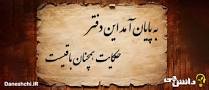 به پایان آمد این دفتر
حکایت همچنان باقیست
دانش‌چی
Daneshchi.IR